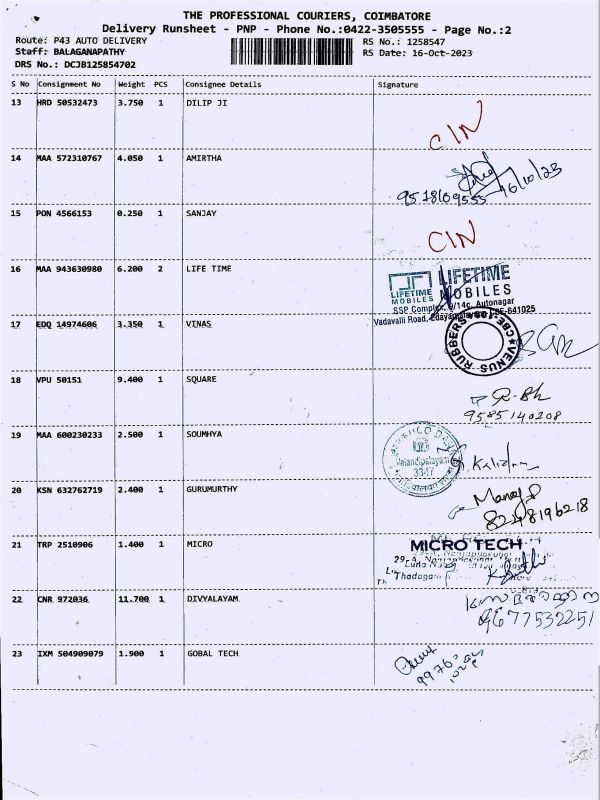 THE PROFESSIONAL COURIERS, COIMBATORE
Delivery Runsheet - PNP - Phone No.:0422-3505555 - Page No.:2
Route: P43 AUTO DELIVERY RS No.: 1258547
Staff: BALAGANAPATHY RS Date: 16-Oct-2023
DRS No.: DCJB125854702
S No Consignment No Weight PCS Consignee Details Signature
13 HRD 50532473 3.750 1 DILIP JI
C/N
14 MAA 572310767 4.050 1 AMIRTHA
16/10/23
15 PON 4566153 0.250 1 SANJAY
C/N
16 MAA 943630980 6.200 2 LIFE TIME
LIFETIME MOBILES
LIFETIME
MOBILES
SSP Complex, 9/14c, Autonagar
Vadavalli Road, 641025
17 EDQ 14974606 3.350 1 VINAS
VENUS RUBBERS CBE
18 VPU 50151 9.400 1 SQUARE
9585140208
19 MAA 600230233 2.500 1 SOUMHYA
UCO BANK
3347
20 KSN 632762719 2.400 1 GURUMURTHY
Manoj P
8248196218
21 TRP 2510906 1.400 1 MICRO
MICRO TECH
29-A,
Thadagam
22 CNR 972036 11.700 1 DIVYALAYAM
9677532251
23 IXM 504909079 1.900 1 GOBAL TECH